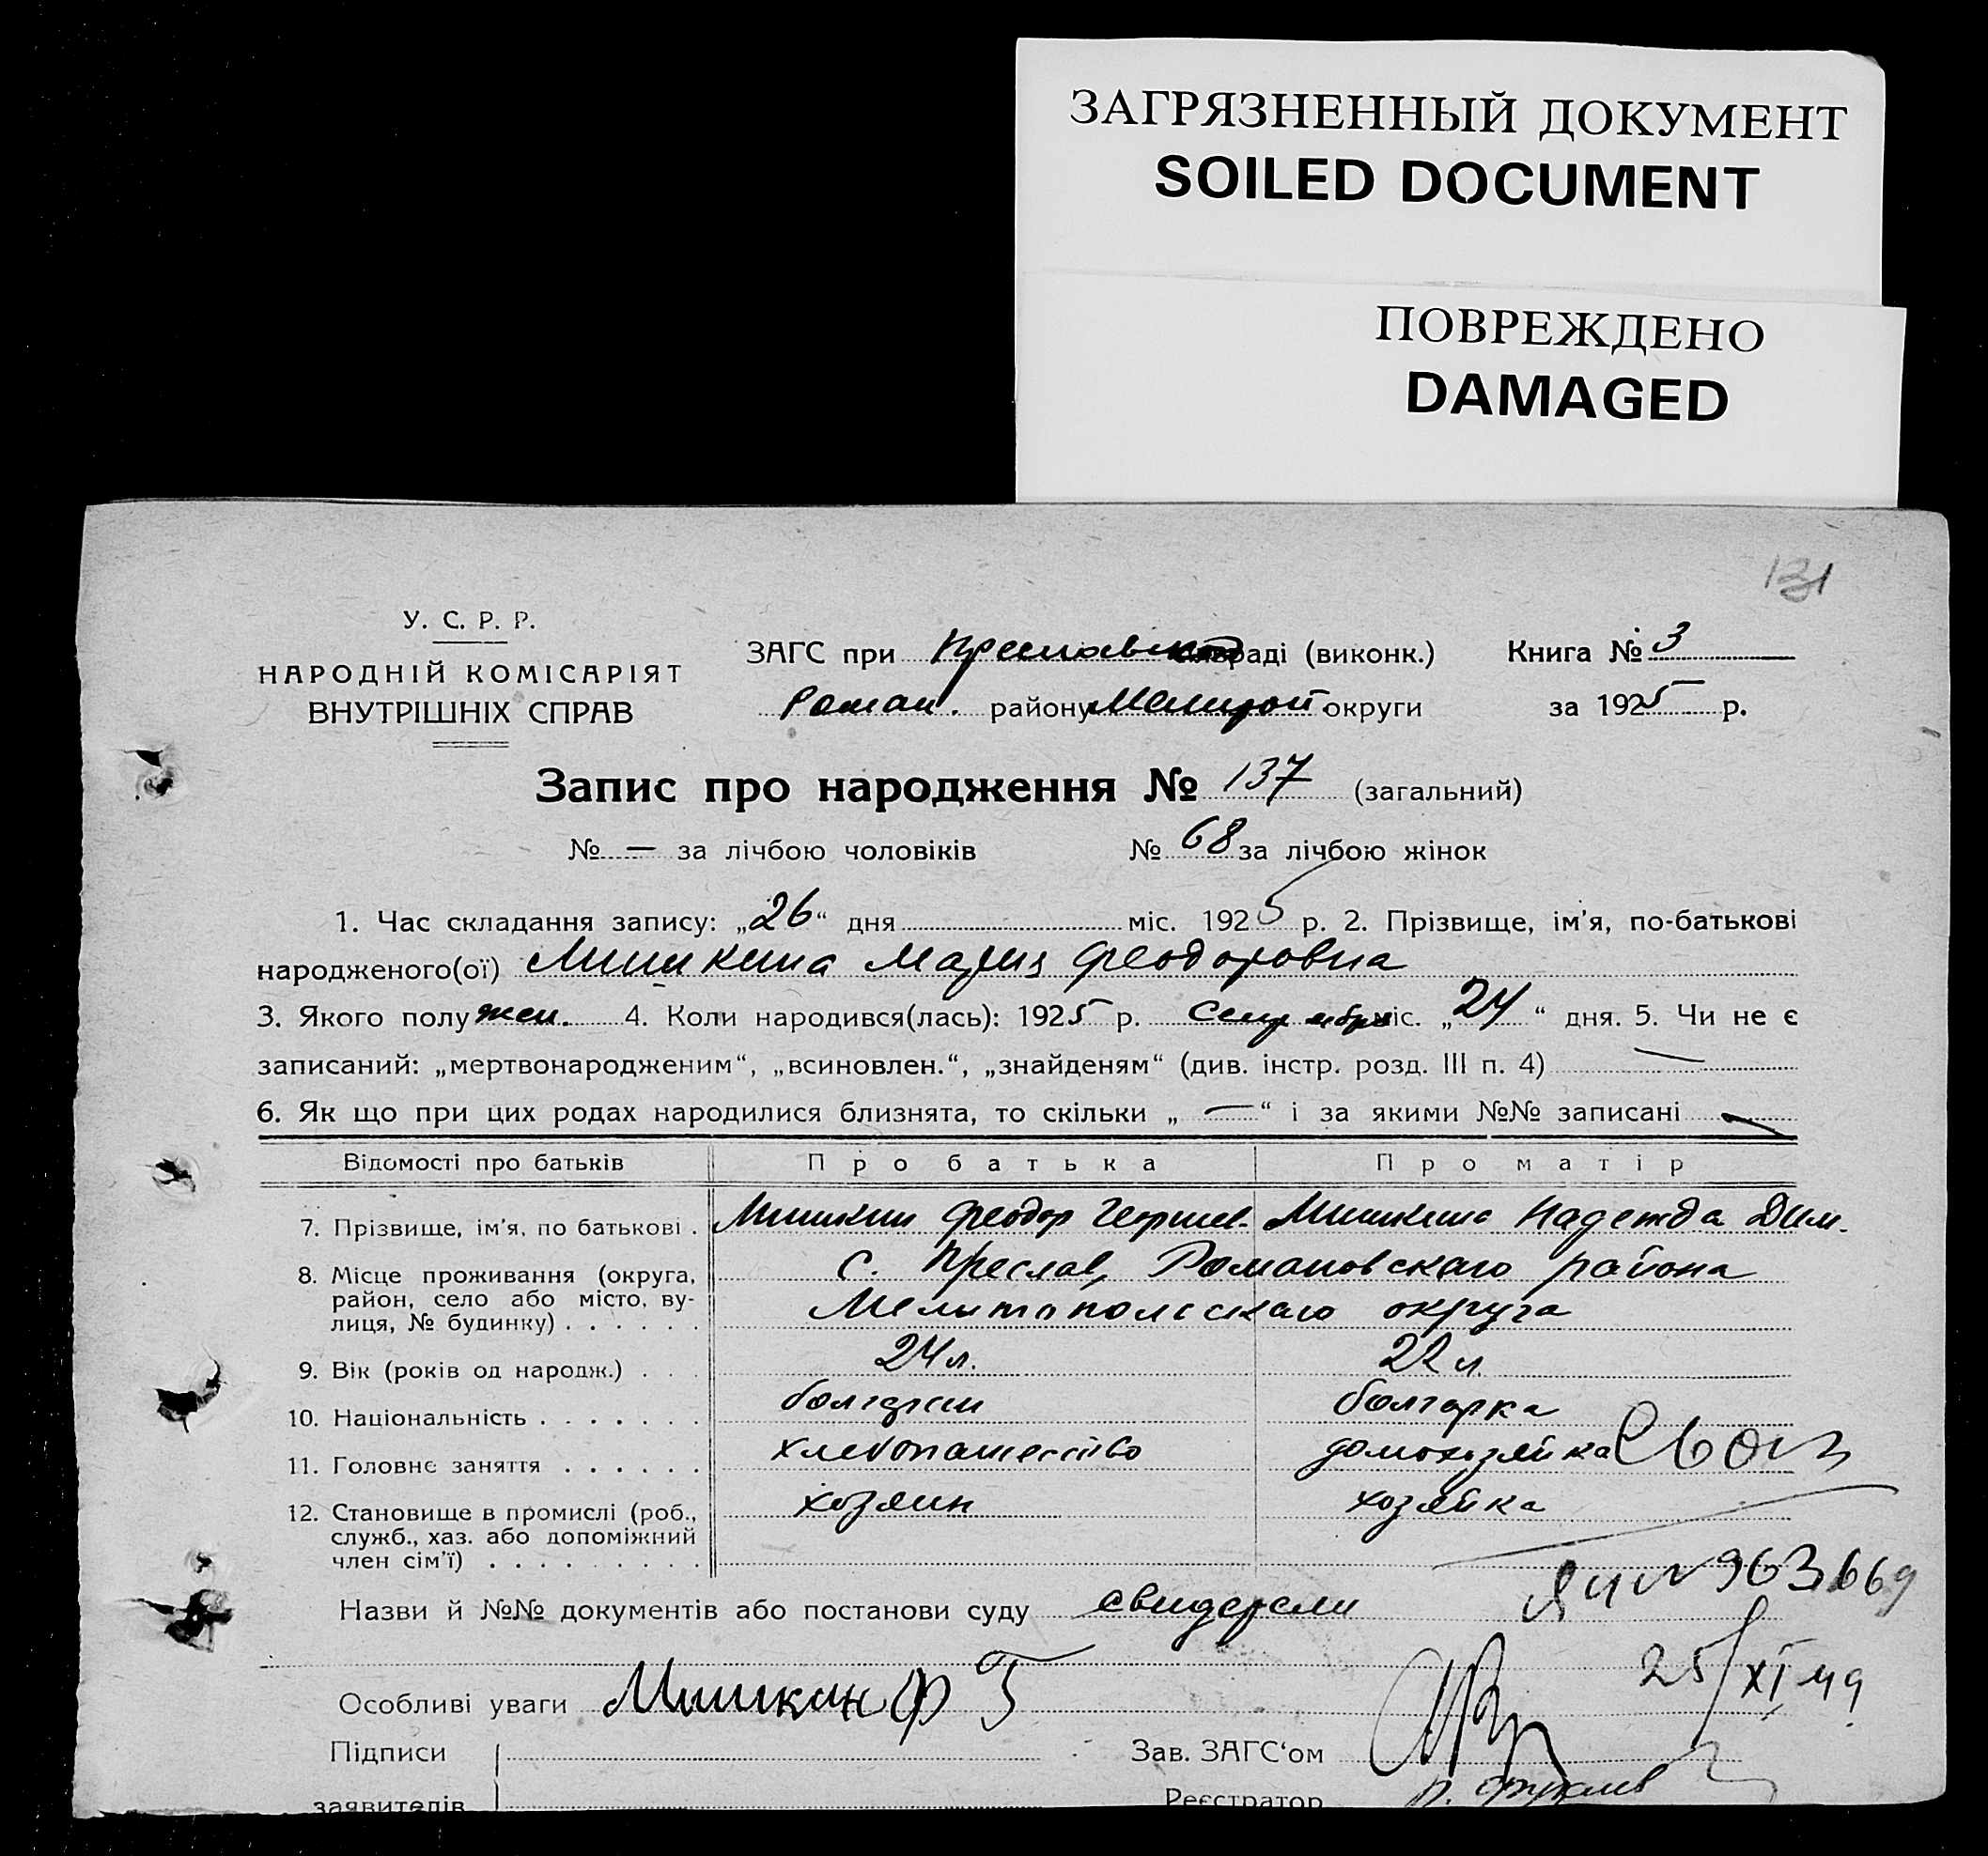 ЗАГРЯЗНЕННЫЙ ДОКУМЕНТ
SOILED DOCUMENT
ПОВРЕЖДЕНО
DAMAGED
131
У. С. Р. Р.
НАРОДНІЙ КОМІСАРІЯТ
ВНУТРІШНІХ СПРАВ
ЗАГС при Преславской раді (виконк.)
Роман. району Мелитоп округи
Книга № 3
за 1925 р.
Запис про народження № 137 (загальний)
№ — за лічбою чоловіків № 68 за лічбою жінок
1. Час складання запису: „26“ дня міс. 1925 р. 2. Прізвище, ім'я, по-батькові
народженого(ої) Мишкина Мария Феодоровна
3. Якого полу жен. 4. Коли народився(лась): 1925 р. Сентября міс. „24“ дня. 5. Чи не є
записаний: „мертвонародженим“, „всиновлен.“, „знайденям“ (див. інстр. розд. III п. 4) —
6. Як що при цих родах народилися близнята, то скільки „—“ і за якими №№ записані —
Відомості про батьків Про батька Про матір
7. Прізвище, ім'я, по батькові . Мишкин Феодор Георгиев. Мишкина Надежда Дим.
8. Місце проживання (округа, район, село або місто, ву-лиця, № будинку) . . . . . . с. Преслав, Романовскаго района
Мелитопольскаго округа
9. Вік (років од народж.) . . . 24 л. 22 л.
10. Національність . . . . . . . болгарин болгарка
11. Головнє заняття . . . . . . хлебопашество домохозяйка
12. Становище в промислі (роб., служб., хаз. або допоміжний член сім'ї) . . . . . . . . . хозяин хозяйка
Назви й №№ документів або постанови суду
963669
25/XI 49
Особливі уваги Мишкин Ф Г
Підписи
заявителів
Зав. ЗАГС‘ом
Реєстратор